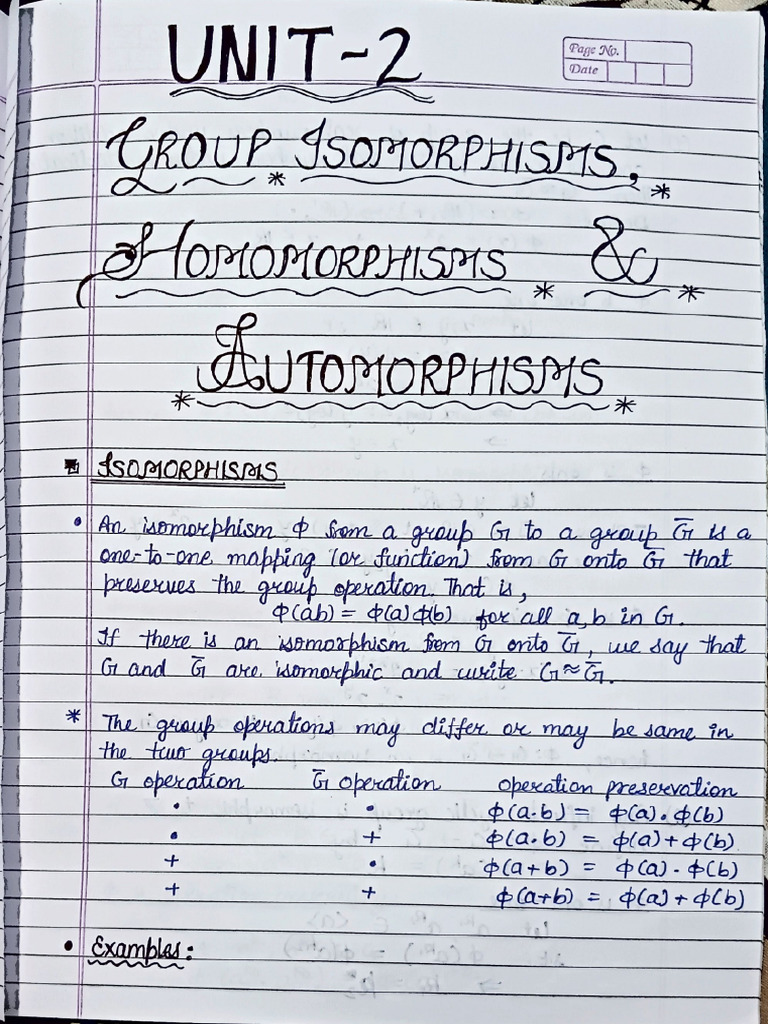 UNIT-2
Page No.
Date
GROUP ISOMORPHISMS,
HOMOMORPHISMS &
AUTOMORPHISMS
ISOMORPHISMS
• An isomorphism ϕ from a group G to a group G̅ is a
one-to-one mapping (or function) from G onto G̅ that
preserves the group operation. That is,
ϕ(ab) = ϕ(a)ϕ(b) for all a,b in G.
If there is an isomorphism from G onto G̅, we say that
G and G̅ are isomorphic and write G≈G̅.
* The group operations may differ or may be same in
the two groups.
G operation G̅ operation operation preservation
• • ϕ(a·b) = ϕ(a)·ϕ(b)
• + ϕ(a·b) = ϕ(a)+ϕ(b)
+ • ϕ(a+b) = ϕ(a)·ϕ(b)
+ + ϕ(a+b) = ϕ(a)+ϕ(b)
• Examples: